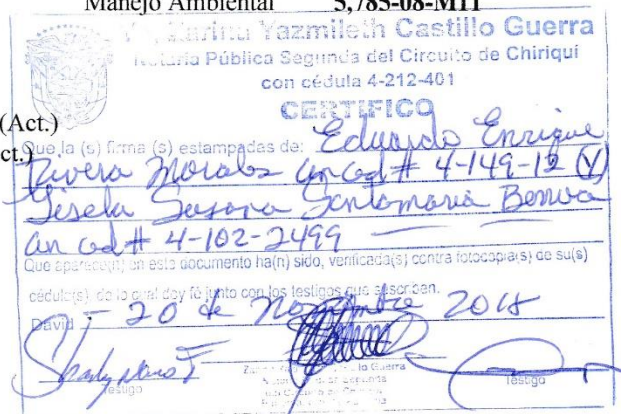 Manejo Ambiental 5,785-08-M11
Yazmileth Castillo Guerra
Notaria Pública Segunda del Circuito de Chiriquí
con cédula 4-212-401
CERTIFICO
(Act.)
Que la (s) firma (s) estampadas de: Eduardo Enrique
ct.)
Rivera Morales con ced # 4-149-12 (Y)
Gisela Susana Santamaria
con ced # 4-102-2499
Que aparece(n) en este documento ha(n) sido, verificada(s) contra fotocopia(s) de su(s)
cédula(s), de lo cual doy fé junto con los testigos que suscriben.
David 20 de Noviembre 2018
Testigo Testigo